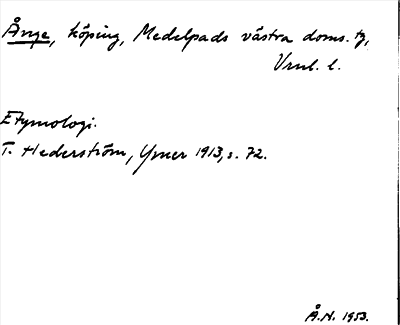 Ånge, köping, Medelpads västra doms. tg,
Vrnl. l.
Etymologi.
T. Hederström, Ymer 1913, s. 72.
Å.N. 1953.